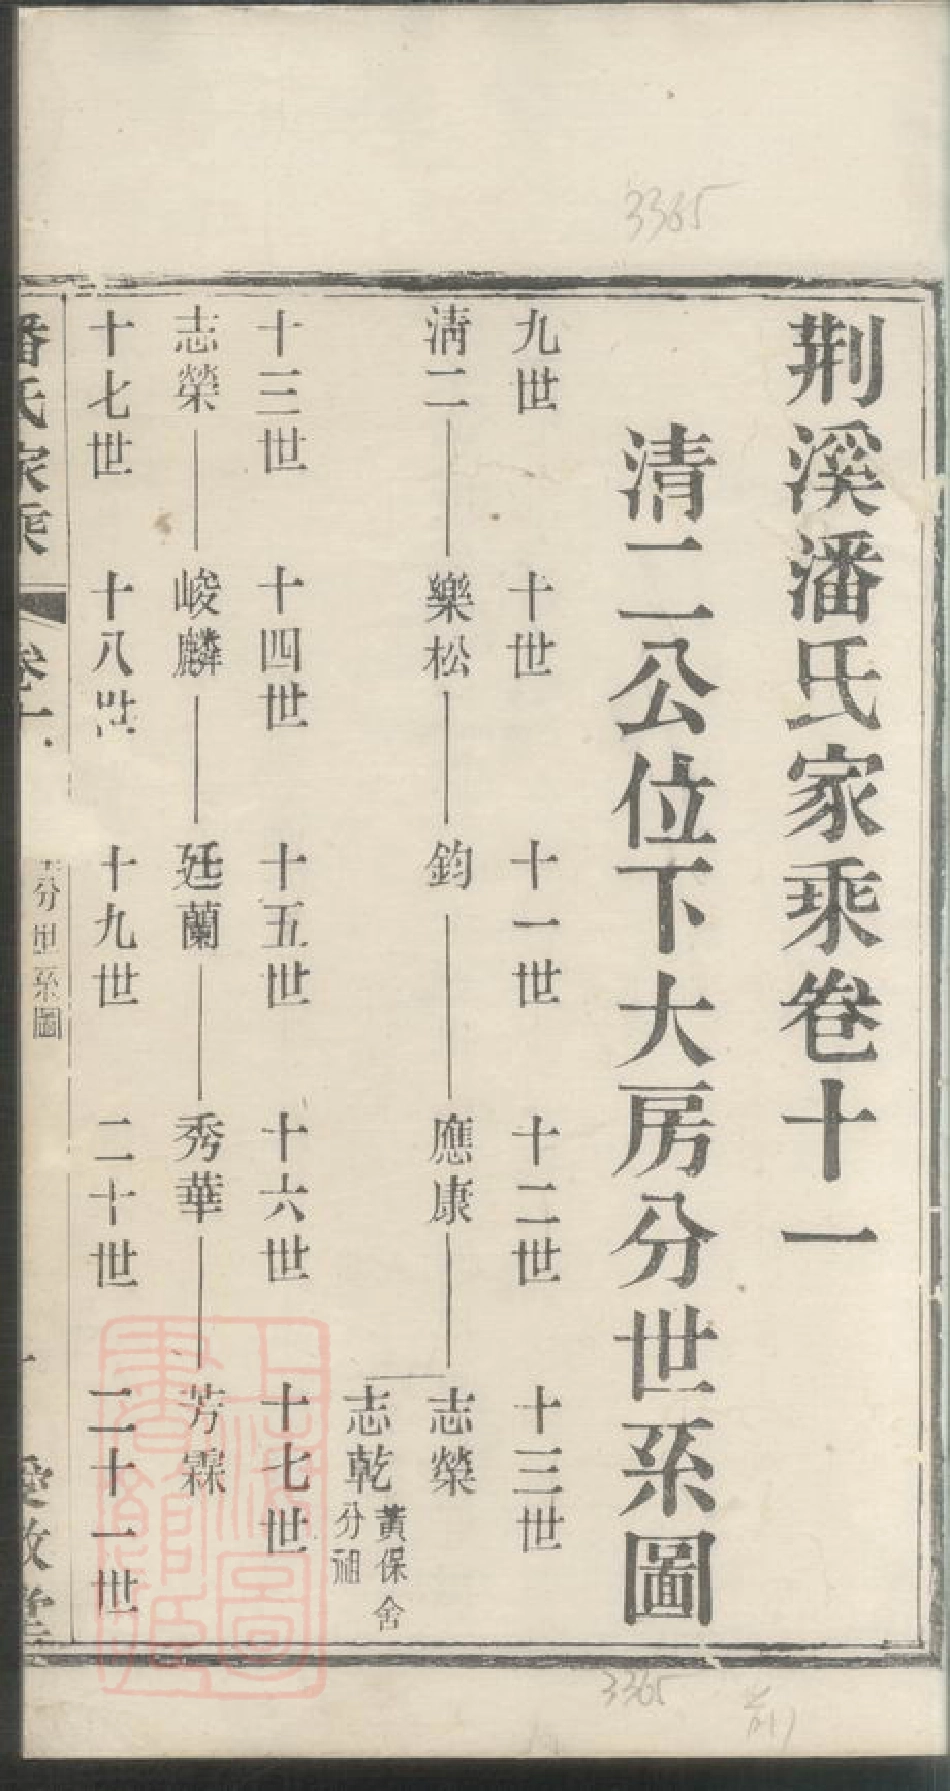 荆溪潘氏家乘卷十一
清二公位下大房分世系圖
九世 十世 十一世 十二世 十三世
清二 樂松 鈞 應康 志榮
志乾 黃保舍分祖
十三世 十四世 十五世 十六世 十七世
志榮 峻麟 廷蘭 秀華 芳霖
十七世 十八世 十九世 二十世 二十一世
潘氏家乘 卷十 分世系圖 一
3365
3365